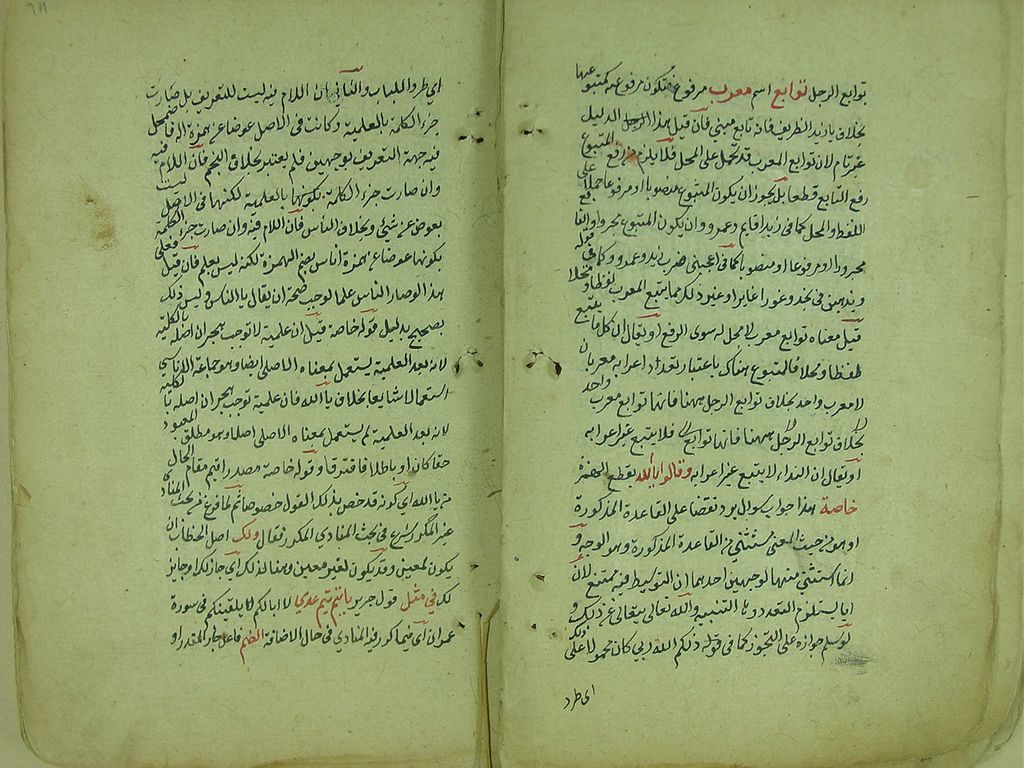 توابع الرجل توابع اسم معرب مرفوع فتكون مرفوعة كمتبوعها
بخلاف يا زيد الظريف فانه تابع مبني فان قيل هذا الدليل
غير تام لان توابع المعرب قد تحمل على المحل فلا يلزم من رفع المتبوع
رفع التابع قطعا بل يجوز ان يكون المتبوع منصوبا او مرفوعا حملا على
اللفظ والمحل كما في زيدا قايم وعمرو وان يكون المتبوع مجرورا والتابع
مجرورا او مرفوعا او منصوبا كما في اعجبني ضرب زيد وعمرو وكما في قوله
يذهبن في نجد وغورا غايرا وغير ذلك مما يتبع المعرب لفظا ومحلا
قيل معناه توابع معرب لا محل له سوى الرفع او يقال ان كل ما يتبع
لفظا ومحلا فالمتبوع هناك باعتبار تعداد اعرابه معربان
لا معرب واحد بخلاف توابع الرجل ههنا فانها توابع معرب واحد
بخلاف توابع الرجل ههنا فانها توابع فلا يتبع غير اعرابه
او يقال ان النداء لا يتبع غير اعرابه وقالوا يا الله بقطع الهمزة
خاصة هذا جواب سوال يرد نقضا على القاعدة المذكورة
او هو من حيث المعنى مستثنى من القاعدة المذكورة وهو الوجه و
انما استثني منها لوجهين احدهما ان التوسيط فيه ممتنع لان
ايا يستلزم التعدد وها التنبيه والله تعالى يتعالى عن ذلك و
لو سلم جوازه على التجوز كما في قوله ذلكم الله ربي كان محمولا على
اى طرد
اى طردا للباب والثاني ان اللام فيه ليست للتعريف بل صارت
جزء الكلمة بالعلمية وكانت في الاصل عوضا عن همزة اله فاضمحل
فيه جهة التعريف بوجهين فلم يعتبر بخلاف النجم فان اللام فيه
وان صارت جزء الكلمة بكونها بالعلمية لكنها في الاصل ليست
بعوض عن شيء وبخلاف الناس فان اللام فيه وان صارت جزء الكلمة
بكونها عوضا عن همزة اناس بضم الهمزة لكنه ليس بعلم فان قيل فعلى
هذا لو صار الناس علما لوجب صحة ان يقال يا الناس وليس ذلك
بصحيح بدليل قوله خاصة قيل ان علمية لا توجب هجران اصله بالكلية
لانه بعد العلمية يستعمل بمعناه الاصلي ايضا وهو جماعة الاناسي
استعمالا شايعا بخلاف يا الله فان علمية توجب هجران اصله بالكلية
لانه بعد العلمية لم يستعمل بمعناه الاصلي اصلا وهو مطلق المعبود
حقا كان او باطلا فافترقا وقوله خاصة مصدر اقيم مقام الحال
من يا الله اى كونه قد خص بذلك القول خصوصا ثم لما فرغ من بحث المنادى
غير المكرر شرع في بحث المنادي المكرر فقال ولك اصل الخطاب ان
يكون لمعين وقد يكون لغير معين وهنا لذلك اى جاز لك او جايز
لك في مثل قول جرير يا تيم تيم عدي لا ابا لكم لا يلقينكم في سورة
عمر اى فيما كرر فيه المنادي في حال الاضافة الضم فاعل جاز المقدر او